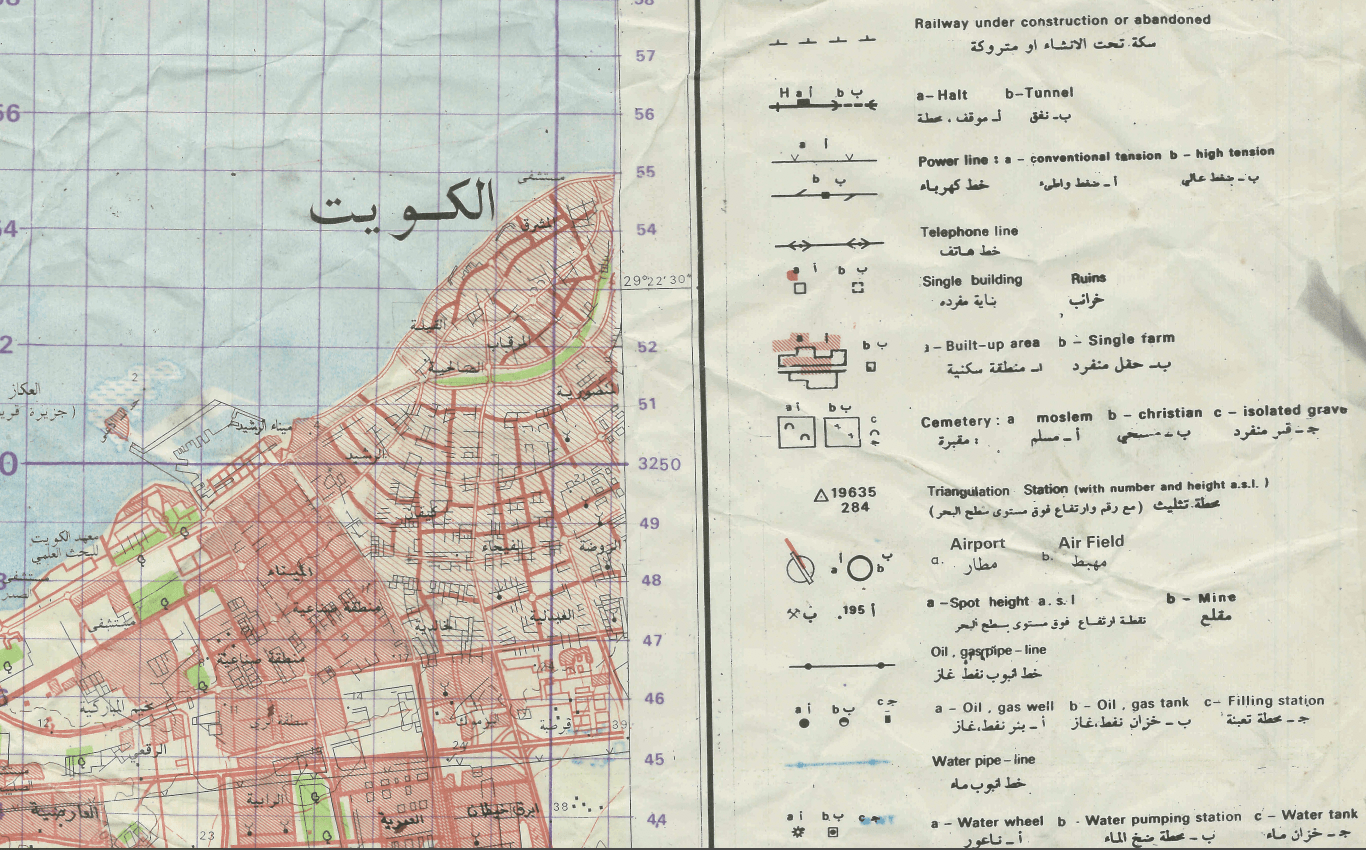 58
57
56
55
54
29°22'30"
52
51
3250
49
48
47
46
45
44
56
54
39
38
23
الكويت
مستشفى
الشرق
المرقاب
الصالحية
المنصورية
العكاز
ميناء الرشيد
كيفان
الفيحاء
الروضة
معهد الكويت
للبحث العلمي
الميناء
منطقة صناعية
الخالدية
العديلية
مستشفى
منطقة صناعية
مخيم المباركية
اليرموك
قرطبة
الرقعي
الرابية
العمرية
ابرق خيطان
العارضية
Railway under construction or abandoned
سكة تحت الانشاء او متروكة
H a أ b ب
a - Halt b - Tunnel
أ ـ موقف ، محطة ب ـ نفق
a أ
Power line : a - conventional tansion b - high tension
b ب
خط كهرباء أ ـ ضغط واطىء ب ـ ضغط عالي
Telephone line
خط هاتف
a أ b ب
Single building Ruins
بناية مفرده خرائب
a أ b ب
a - Built-up area b - Single farm
أ ـ منطقة سكنية ب ـ حقل منفرد
a أ b ب c ج
Cemetery : a moslem b - christian c - isolated grave
مقبرة : أ ـ مسلم ب ـ مسيحي ج ـ قبر منفرد
19635
284
Triangulation Station (with number and height a.s.l.)
محطة تثليث (مع رقم وارتفاع فوق مستوى سطح البحر)
a أ b ب
Airport Air Field
a. مطار b. مهبط
ب .195 أ
a - Spot height a.s.l b - Mine
نقطة ارتفاع فوق مستوى سطح البحر مقلع
Oil , gas pipe-line
خط انبوب نفط غاز
a أ b ب c ج
a - Oil , gas well b - Oil , gas tank c - Filling station
أ ـ بئر نفط،غاز ب ـ خزان نفط،غاز ج ـ محطة تعبئة
Water pipe-line
خط انبوب ماء
a أ b ب c ج
a - Water wheel b - Water pumping station c - Water tank
أ ـ ناعور ب ـ محطة ضخ الماء ج ـ خزان ماء